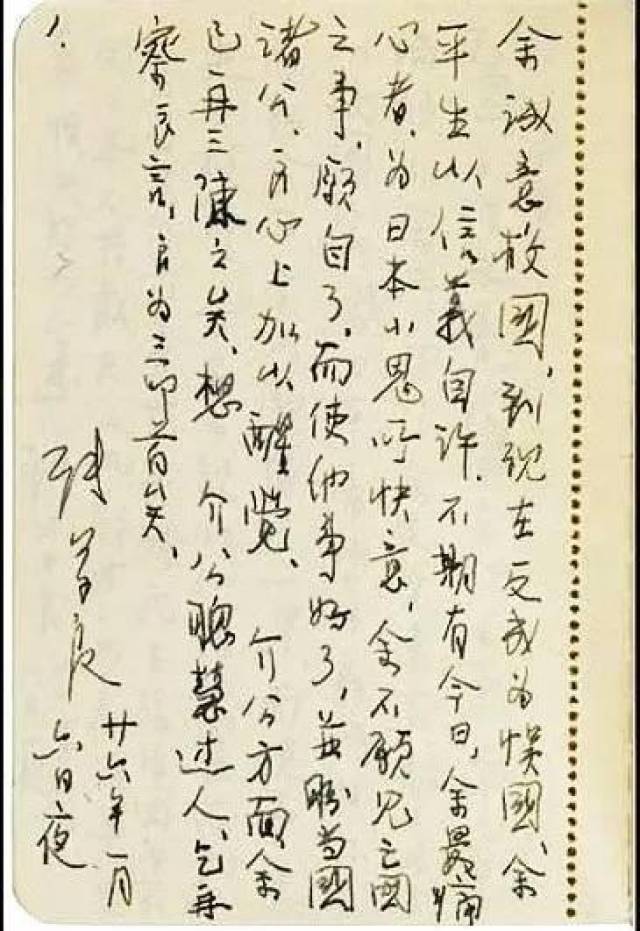 余誠意救國,到現在反成為悞國、余
平生以信義自許.不期有今日、余最痛
心者、為日本小鬼所快意,余不願見亡國
之事、願自了,而使他事好了,並盼當國
諸公、良心上加以醒覺、 介公方面、余
已再三陳之矣、想 介公聰慧過人、乞再
察良言、良為三叩首矣、
張學良
廿六年一月
六日夜